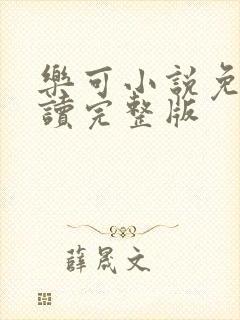 樂可小説免
讀完整版
薛晟文